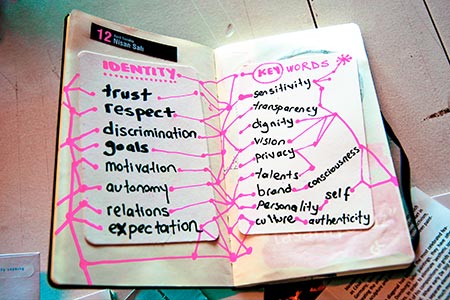 12
Nisan Salı
IDENTITY
trust
respect
discrimination
goals
motivation
autonomy
relations
expectation
KEY WORDS
sensitivity
transparency
dignity
vision
privacy
talents
consciousness
brand
self
personality
culture authenticity